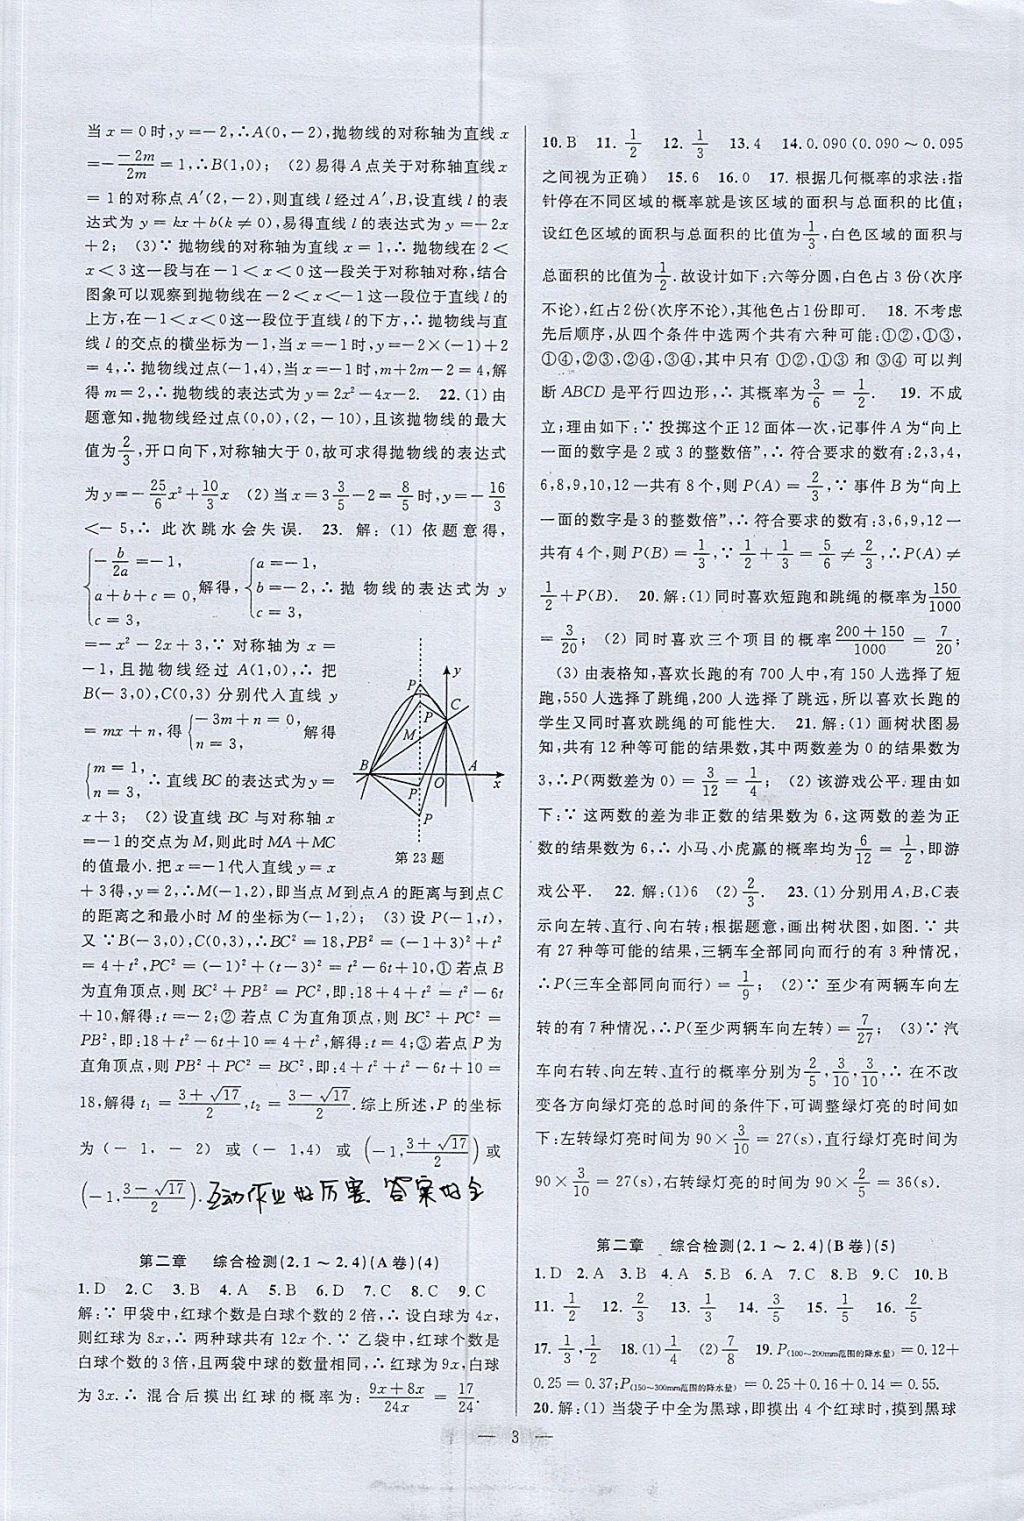 当 x=0时,y=-2,∴A(0,-2),抛物线的对称轴为直线 x
=-\frac{-2m}{2m}=1,∴B(1,0); (2) 易得 A点关于对称轴直线 x
=1的对称点 A′(2,-2),则直线 l 经过 A′,B,设直线 l 的表
达式为 y=kx+b(k≠0),易得直线 l 的表达式为 y=-2x
+2; (3)∵ 抛物线的对称轴为直线 x=1,∴ 抛物线在 2<
x<3这一段与在-1<x<0这一段关于对称轴对称,结合
图象可以观察到抛物线在-2<x<-1这一段位于直线 l 的
上方,在-1<x<0这一段位于直线 l 的下方,∴ 抛物线与直
线 l 的交点的横坐标为-1,当 x=-1时,y=-2×(-1)+2
=4,∴ 抛物线过点(-1,4),当 x=-1时,m+2m-2=4,解
得 m=2,∴ 抛物线的表达式为 y=2x²-4x-2. 22.(1) 由
题意知,抛物线经过点(0,0),(2,-10),且该抛物线的最大
值为\frac{2}{3},开口向下,对称轴大于 0,故可求得抛物线的表达式
为 y=-\frac{25}{6}x²+\frac{10}{3}x (2)当 x=3\frac{3}{5}-2=\frac{8}{5}时,y=-\frac{16}{3}
<-5,∴ 此次跳水会失误. 23. 解:(1) 依题意得,
{-\frac{b}{2a}=-1, a+b+c=0, c=3, 解得,{a=-1, b=-2, c=3, ∴ 抛物线的表达式为 y
=-x²-2x+3,∵ 对称轴为 x=
-1,且抛物线经过 A(1,0),∴ 把
B(-3,0),C(0,3) 分别代人直线 y
=mx+n,得{-3m+n=0, n=3, 解得
{m=1, n=3, ∴直线 BC 的表达式为 y=
x+3; (2) 设直线 BC 与对称轴 x
=-1的交点为 M,则此时 MA+MC
的值最小.把 x=-1代人直线 y=x
y
P
P
C
M
B
O
A
x
P
P
第 23 题
+3得,y=2,∴M(-1,2),即当点 M到点 A 的距离与到点 C
的距离之和最小时 M 的坐标为(-1,2); (3) 设 P(-1,t),
又 ∵B(-3,0),C(0,3),∴BC²=18,PB²=(-1+3)²+t²
=4+t²,PC²=(-1)²+(t-3)²=t²-6t+10,① 若点 B
为直角顶点,则 BC²+PB²=PC²,即:18+4+t²=t²-6t
+10,解得:t=-2;② 若点 C为直角顶点,则 BC²+PC²=
PB²,即:18+t²-6t+10=4+t²,解得:t=4;③ 若点 P为
直角顶点,则 PB²+PC²=BC²,即:4+t²+t²-6t+10=
18,解得 t₁=\frac{3+√17}{2},t₂=\frac{3-√17}{2}.综上所述,P 的坐标
为 (-1,-2) 或 (-1,4) 或 (-1,\frac{3+√17}{2}) 或
(-1,\frac{3-√17}{2}). 互动作业好厉害 答案好全
第二章 综合检测(2.1～2.4)(A卷)(4)
1.D 2.C 3.B 4.A 5.B 6.D 7.C 8.C 9.C
解:∵ 甲袋中,红球个数是白球个数的 2 倍,∴ 设白球为 4x,
则红球为 8x,∴ 两种球共有 12x 个.∵ 乙袋中,红球个数是
白球个数的 3 倍,且两袋中球的数量相同,∴ 红球为 9x,白球
为 3x.∴ 混合后摸出红球的概率为:\frac{9x+8x}{24x}=\frac{17}{24}.
10.B 11.\frac{1}{2} 12.\frac{1}{3} 13.4 14.0.090(0.090～0.095
之间视为正确) 15.6 16.0 17. 根据几何概率的求法:指
针停在不同区域的概率就是该区域的面积与总面积的比值;
设红色区域的面积与总面积的比值为\frac{1}{3},白色区域的面积与
总面积的比值为\frac{1}{2}.故设计如下:六等分圆,白色占 3份(次序
不论),红占 2份(次序不论),其他色占 1份即可. 18. 不考虑
先后顺序,从四个条件中选两个共有六种可能:①②,①③,
①④,②③,②④,③④,其中只有 ①②,①③ 和 ③④ 可以判
断 ABCD 是平行四边形,∴ 其概率为\frac{3}{6}=\frac{1}{2}. 19. 不成
立;理由如下:∵ 投掷这个正 12 面体一次,记事件 A为“向上
一面的数字是 2 或 3 的整数倍”,∴ 符合要求的数有:2,3,4,
6,8,9,10,12一共有 8个,则 P(A)=\frac{2}{3},∵ 事件 B为“向上
一面的数字是 3 的整数倍”,∴ 符合要求的数有:3,6,9,12 一
共有 4个,则 P(B)=\frac{1}{3},∵\frac{1}{2}+\frac{1}{3}=\frac{5}{6}≠\frac{2}{3},∴P(A)≠
\frac{1}{2}+P(B). 20.解:(1) 同时喜欢短跑和跳绳的概率为\frac{150}{1000}
=\frac{3}{20}; (2) 同时喜欢三个项目的概率\frac{200+150}{1000}=\frac{7}{20};
(3) 由表格知,喜欢长跑的有 700 人中,有 150 人选择了短
跑,550 人选择了跳绳,200 人选择了跳远,所以喜欢长跑的
学生又同时喜欢跳绳的可能性大. 21. 解:(1) 画树状图易
知,共有 12 种等可能的结果数,其中两数差为 0 的结果数为
3,∴P(两数差为 0)=\frac{3}{12}=\frac{1}{4}; (2) 该游戏公平.理由如
下:∵ 这两数的差为非正数的结果数为 6,这两数的差为正
数的结果数为 6,∴ 小马、小虎赢的概率均为\frac{6}{12}=\frac{1}{2},即游
戏公平. 22. 解:(1)6 (2)\frac{2}{3}. 23.(1) 分别用 A,B,C表
示向左转、直行、向右转;根据题意,画出树状图,如图.∵ 共
有 27 种等可能的结果,三辆车全部同向而行的有 3 种情况,
∴P(三车全部同向而行)=\frac{1}{9}; (2)∵ 至少有两辆车向左
转的有 7 种情况,∴P(至少两辆车向左转)=\frac{7}{27}; (3)∵ 汽
车向右转、向左转、直行的概率分别为\frac{2}{5},\frac{3}{10},\frac{3}{10},∴ 在不改
变各方向绿灯亮的总时间的条件下,可调整绿灯亮的时间如
下:左转绿灯亮时间为 90×\frac{3}{10}=27(s),直行绿灯亮时间为
90×\frac{3}{10}=27(s),右转绿灯亮的时间为 90×\frac{2}{5}=36(s).
第二章 综合检测(2.1～2.4)(B卷)(5)
1.D 2.A 3.D 4.A 5.C 6.B 7.C 8.C 9.C 10.B
11.\frac{1}{2} 12.\frac{2}{3} 13.\frac{1}{3} 14.\frac{3}{5} 15.\frac{1}{5} 16.\frac{2}{5}
17.\frac{1}{3},\frac{1}{2} 18.(1)\frac{1}{4} (2)\frac{7}{8} 19.P(100～200mm范围的降水量)=0.12+
0.25=0.37;P(150～300mm范围的降水量)=0.25+0.16+0.14=0.55.
20.解:(1) 当袋子中全为黑球,即摸出 4 个红球时,摸到黑球
— 3 —